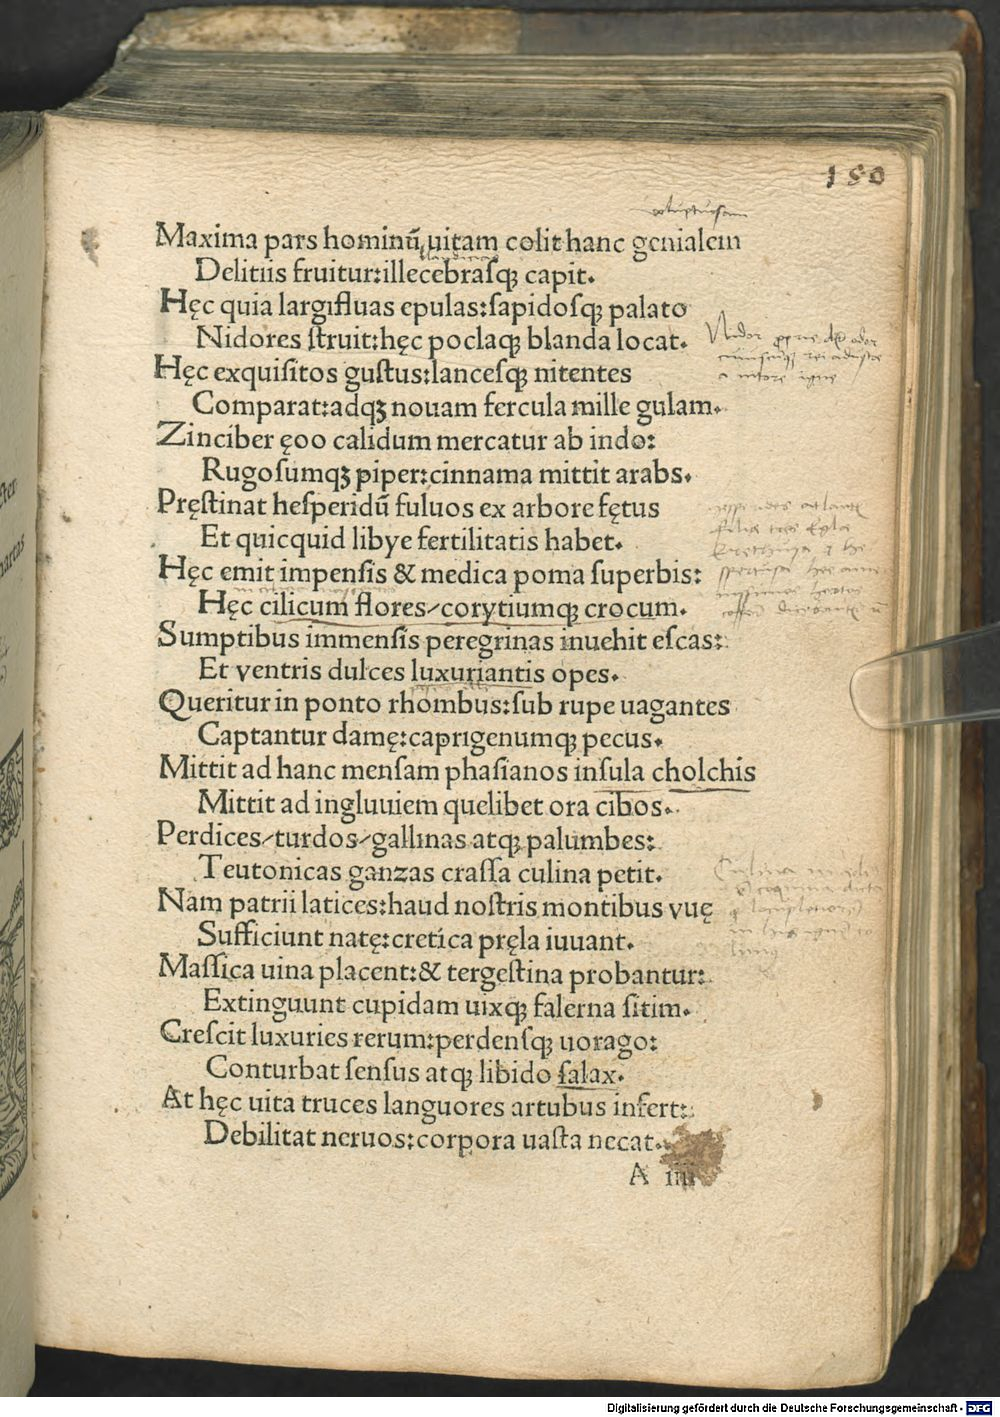 150
voluptuosam
Maxima pars hominū uitam colit hanc genialem
Delitiis fruitur: illecebrasqꝫ capit.
Hęc quia largifluas epulas: sapidosqꝫ palato
Nidores struit: hęc poclaqꝫ blanda locat.
Hęc exquisitos gustus: lancesqꝫ nitentes
Comparat: adqꝫ nouam fercula mille gulam.
Zinciber ęoo calidum mercatur ab indo:
Rugosumqꝫ piper: cinnama mittit arabs.
Pręstinat hesperidū fuluos ex arbore fętus
Et quicquid libye fertilitatis habet.
Hęc emit impensis & medica poma superbis:
Hęc cilicum flores/corytiumqꝫ crocum.
Sumptibus immensis peregrinas inuehit escas:
Et ventris dulces luxuriantis opes.
Queritur in ponto rhombus: sub rupe uagantes
Captantur damę: caprigenumqꝫ pecus.
Mittit ad hanc mensam phasianos insula cholchis
Mittit ad ingluuiem quelibet ora cibos.
Perdices/turdos/gallinas atqꝫ palumbes:
Teutonicas ganzas crassa culina petit.
Nam patrii latices: haud nostris montibus vuę
Sufficiunt natę: cretica pręla iuuant.
Massica uina placent: & tergestina probantur:
Extinguunt cupidam uixqꝫ falerna sitim.
Crescit luxuries rerum: perdensqꝫ uorago:
Conturbat sensus atqꝫ libido salax.
At hęc uita truces languores artubus infert:
Debilitat neruos: corpora uasta necat.
A iiii
Nidor
a nitore igne
Digitalisierung gefördert durch die Deutsche Forschungsgemeinschaft - DFG